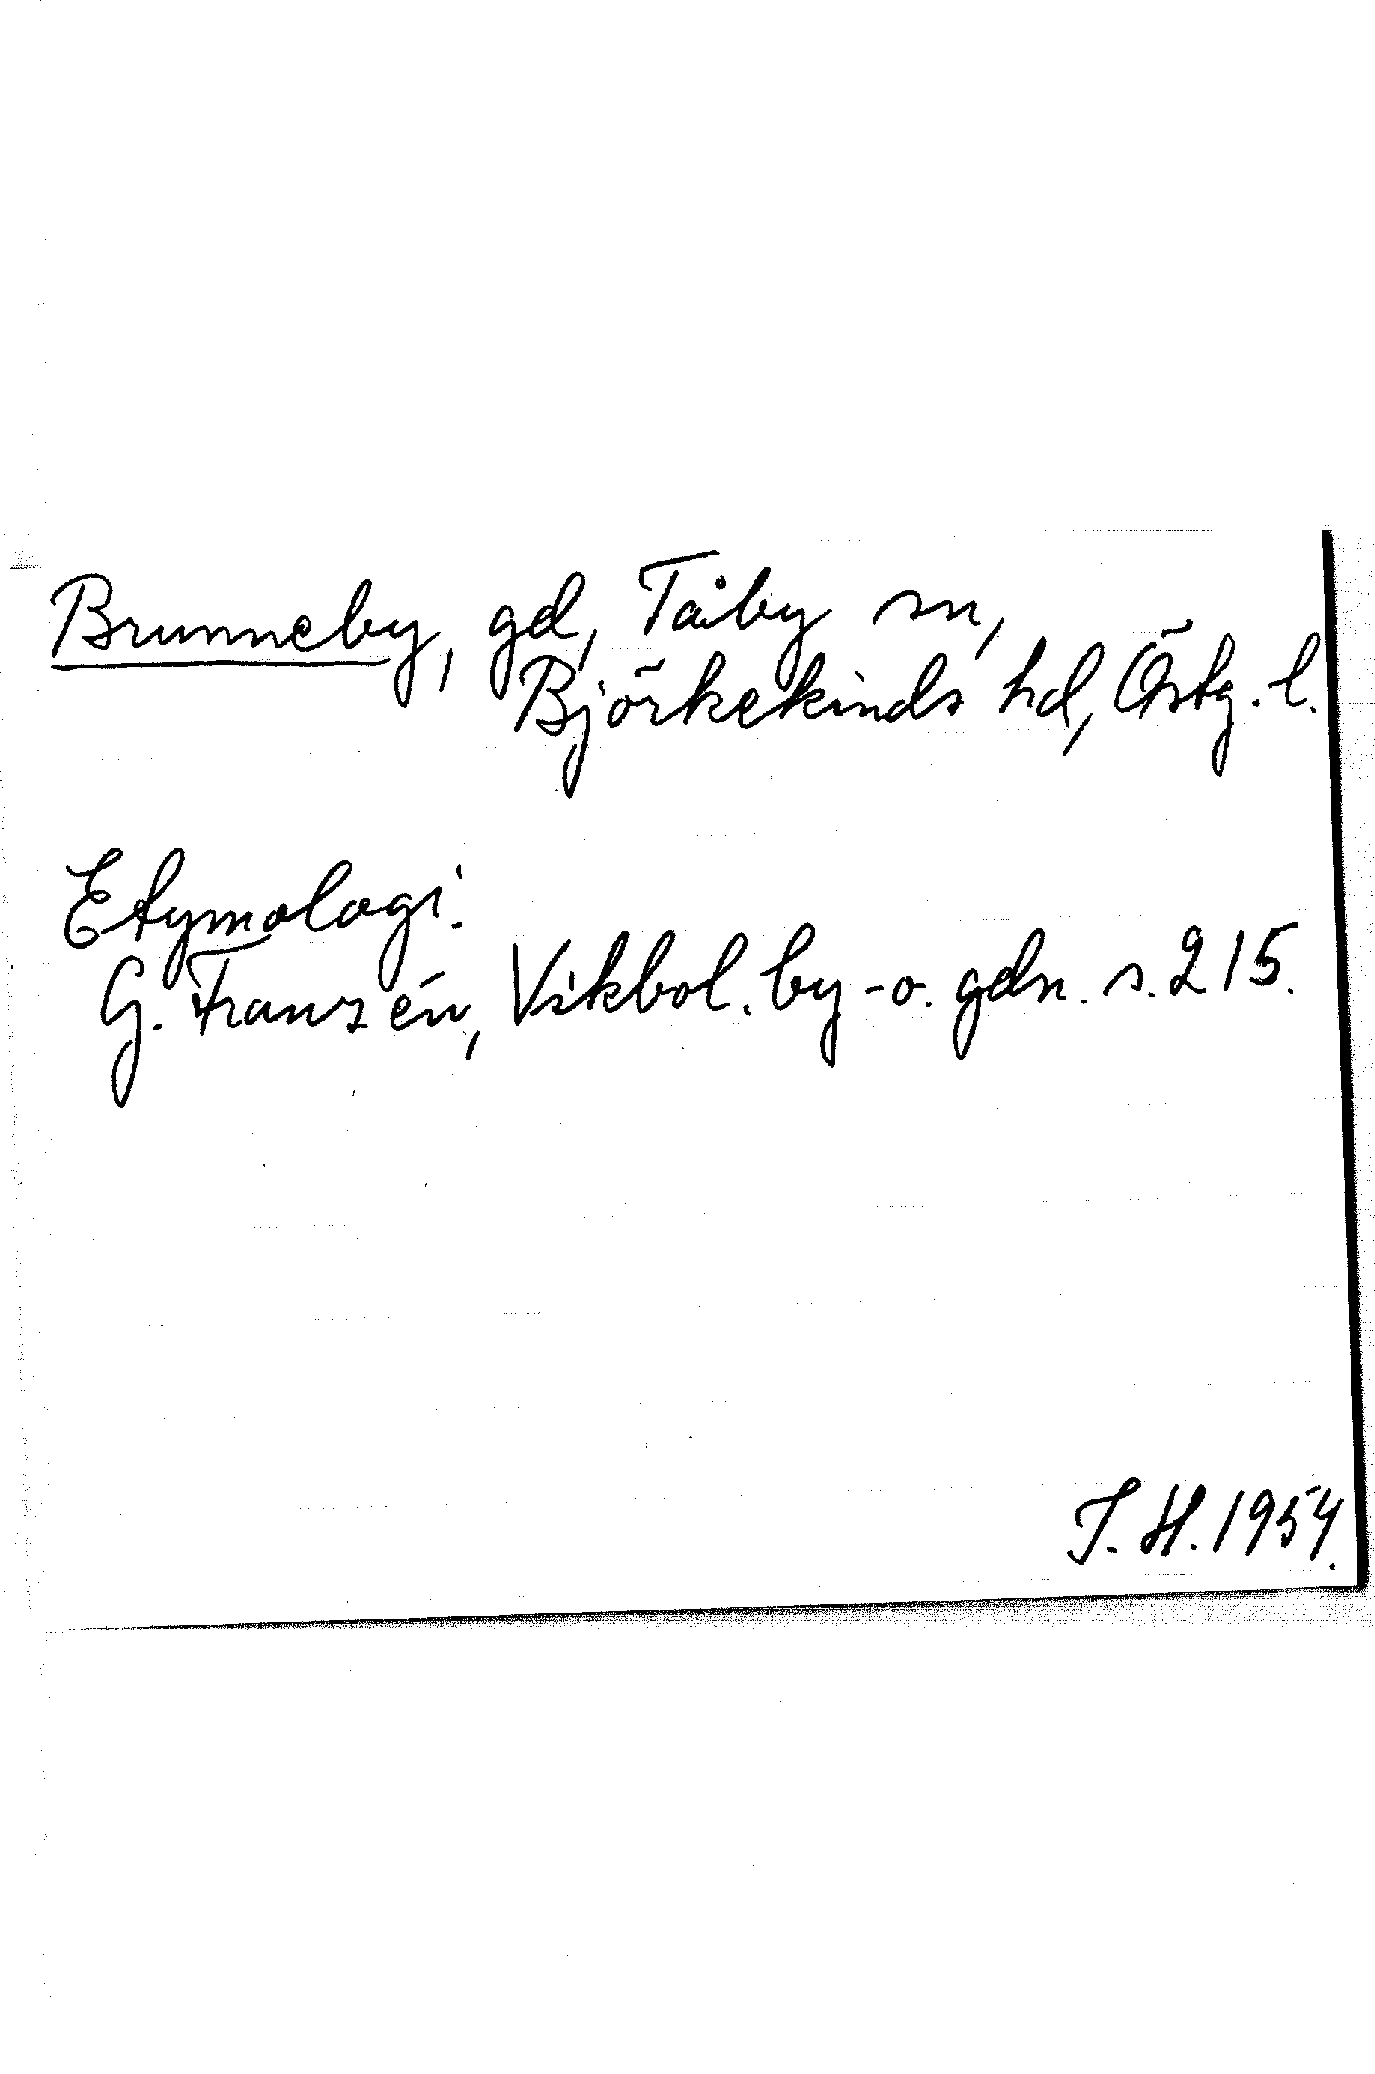 Brunneby, gd, Tåby sn,
Björkekinds hd, Östg. l.
Etymologi.
G. Franzén, Vikbol. by- o. gdn. s. 215.
J. H. 1954.